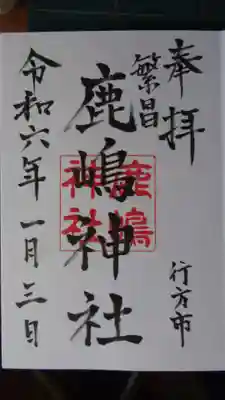 奉拝
行方市
繁昌
鹿嶋神社
鹿嶋
神社
令和六年一月三日